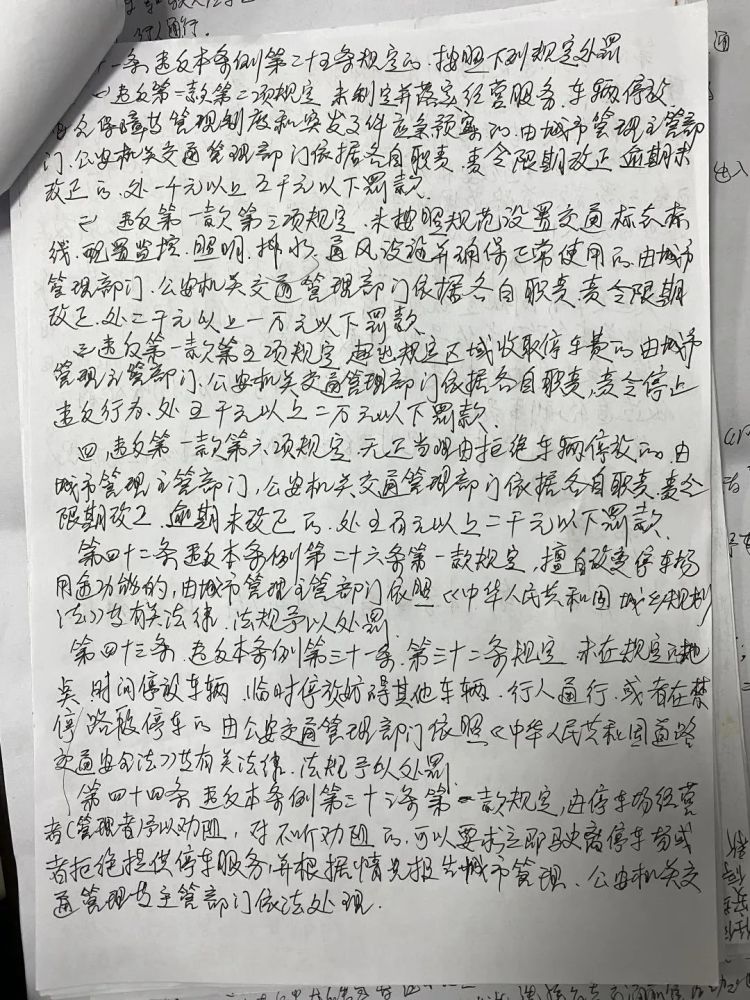 行人通行.
一条 违反本条例第二十五条规定的.按照下列规定处罚
㈠ 违反第一款第二项规定 未制定并落实经营服务.车辆停放.
安全保障等管理制度和突发事件应急预案的.由城市管理主管部
门.公安机关交通管理部门依据各自职责.责令限期改正 逾期未
改正的.处一千元以上五千元以下罚款.
㈡ 违反第一款第三项规定.未按照规范设置交通标志标
线.配置监控.照明.排水.通风设施并确保正常使用的.由城市
管理部门.公安机关交通管理部门依据各自职责.责令限期
改正.处二千元以上一万元以下罚款.
㈢违反第一款第五项规定 超出规定区域收取停车费的.由城市
管理主管部门.公安机关交通管理部门依据各自职责,责令停止
违反行为.处五千元以上二万元以下罚款.
四,违反第一款第六项规定.无正当理由拒绝车辆停放的.由
城市管理主管部门,公安机关交通管理部门依据各自职责.责令
限期改正.逾期未改正的.处五百元以上二千元以下罚款.
第四十二条 违反本条例第二十六条第一款规定,擅自改变停车场
用途功能的,由城市管理主管部门依照《中华人民共和国城乡规划
法》等有关法律.法规予以处罚.
第四十三条.违反本条例第三十一条.第三十二条规定 未在规定的地
点.时间停放车辆.临时停放妨碍其他车辆.行人通行.或者在禁
停路段停车的 由公安交通管理部门依照《中华人民共和国道路
交通安全法》等有关法律.法规予以处罚.
第四十四条 违反本条例第三十三条第一款规定,由停车场经营
者(管理者)予以劝阻,对不听劝阻的,可以要求立即驶离停车场或
者拒绝提供停车服务,并根据情况报告城市管理.公安机关交
通管理等主管部门依法处理.